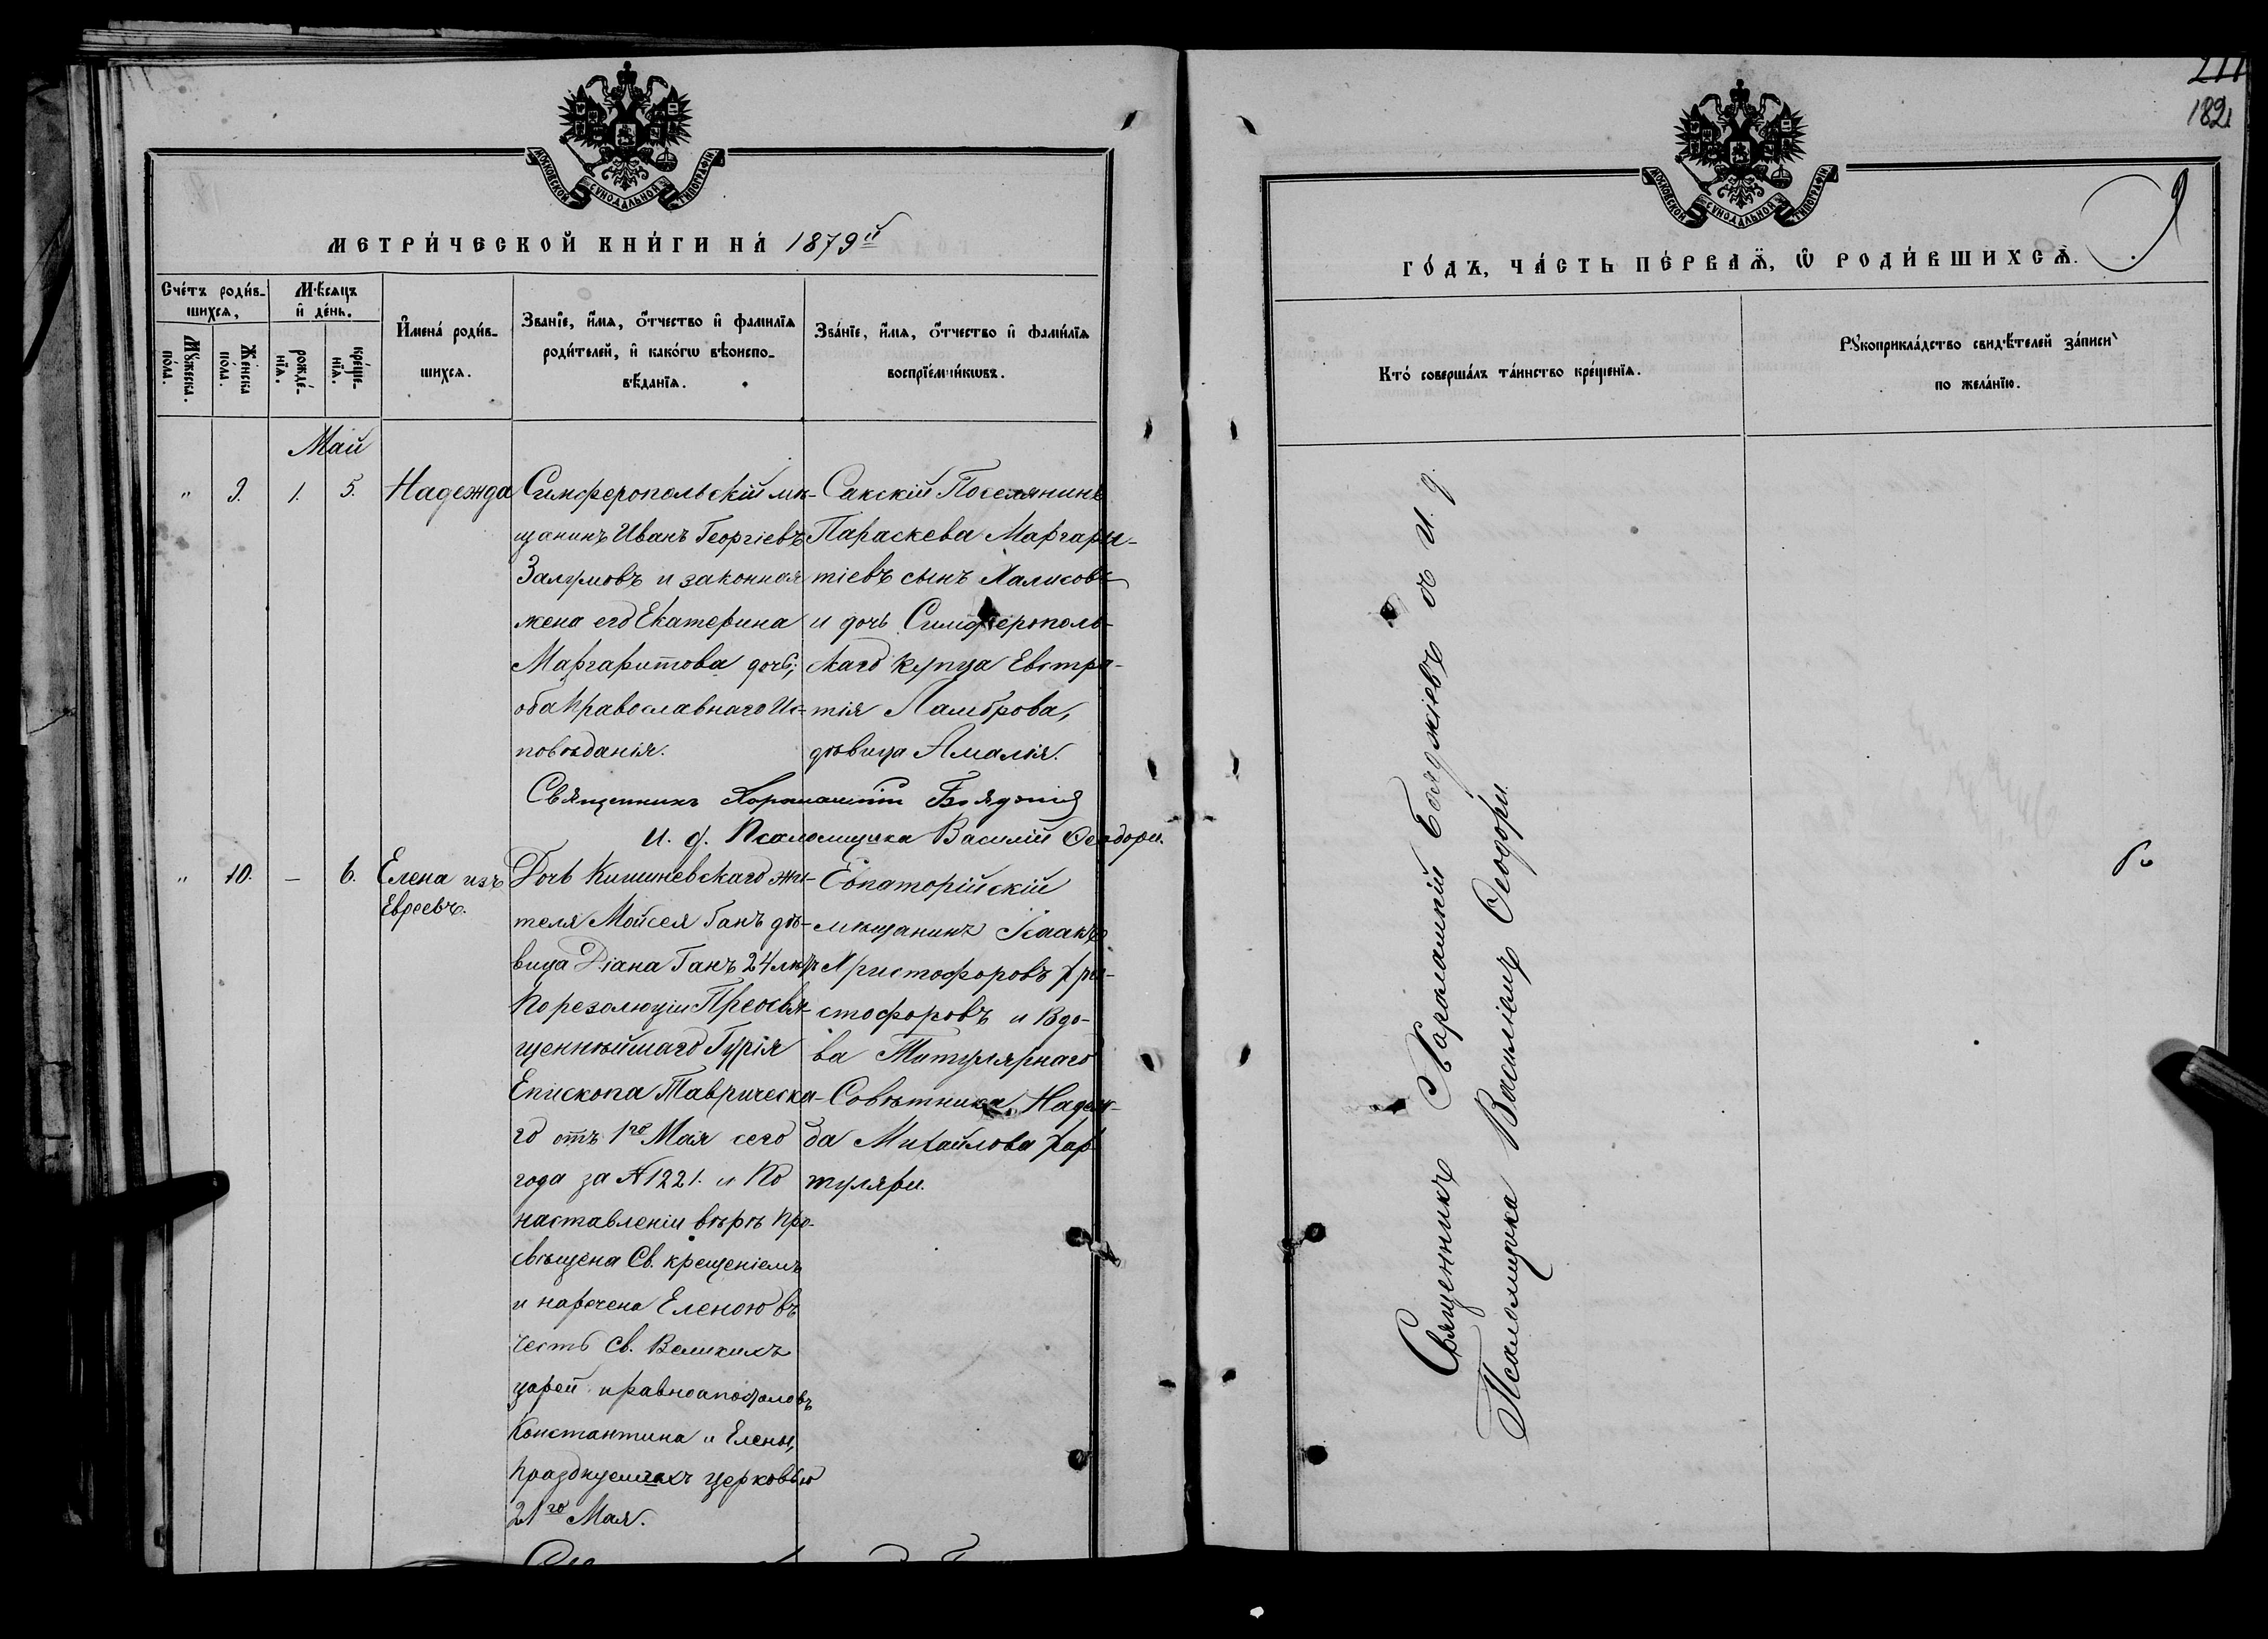 211
182
МОСКОВСКОЙ СѴНОДАЛЬНОЙ ТИПОГРАФІИ
МЕТРИ́ЧЕСКОЙ КНИ́ГИ НА́ 1879й
Счетъ роди́в-
шихся,
Мѣсяцъ
и҆ де́нь.
Мꙋжеска по́ла.
Же́нска по́ла.
рожде́-
нїѧ.
креще-
нїѧ.
И҆мена́ роди́в-
шихся.
Званїе, и҆́мѧ, ѻ҆́тчество и҆ фамилїѧ
роди́телей, и҆ како́гѡ вѣроиспо-
вѣ́данїѧ.
Зва́нїе, и҆́мѧ, ѻ҆́тчество и҆ фами́лїѧ
воспрїе́мникѡвъ.
Май
" 9. 1. 5. Надежда
Симферопольскій мѣ-
щанинъ Иванъ Георгіевъ
Залумовъ и законная
жена его Екатерина
Маргаритова дочь;
оба Православнаго Ис-
повѣданія.
Сакскій Поселянинъ
Параскева Маргари-
тіевъ сынъ Халисовъ
и дочь Симферополь-
скаго купца Евстра-
тія Ламброва,
дѣвица Амалія.
Священникъ Харлампій Бояджіев
И. д. Псаломщика Василій Ѳеодори.
" 10. — 6. Елена изъ
Евреевъ.
Дочь Кишиневскаго жи-
теля Мойсея Ганъ дѣ-
вица Діана Ганъ 24 лѣтъ
По резолюціи Преосвя-
щеннѣйшаго Гурія
Епископа Таврическа-
го отъ 1го Мая сего
года за № 1221. и по
наставленіи вѣрѣ про-
свѣщена Св. крещеніемъ
и наречена Еленою въ
честь Св. Великихъ
царей и равноапостоловъ
Константина и Елены,
празднуемыхъ церковью
21го Мая.
Евпаторійскій
мѣщанинъ Исаакъ
Христофоровъ Хри-
стофоровъ и Вдо-
ва Титулярнаго
Совѣтника Надеж-
да Михайлова Хар-
туляри.
МОСКОВСКОЙ СѴНОДАЛЬНОЙ ТИПОГРАФІИ
9
ГО́ДЪ, ЧА́СТЬ ПЕ́РВАѦ, Ѡ҆ РОДИ́ВШИХСѦ.
Кто́ соверша́лъ та́инство креще́нїѧ.
Рꙋкоприкла́дство свидѣ́телей за́писи
по жела́нїю.
Священникъ Харлампій Бояджіевъ и И. д.
Псаломщика Василій Ѳеодори.